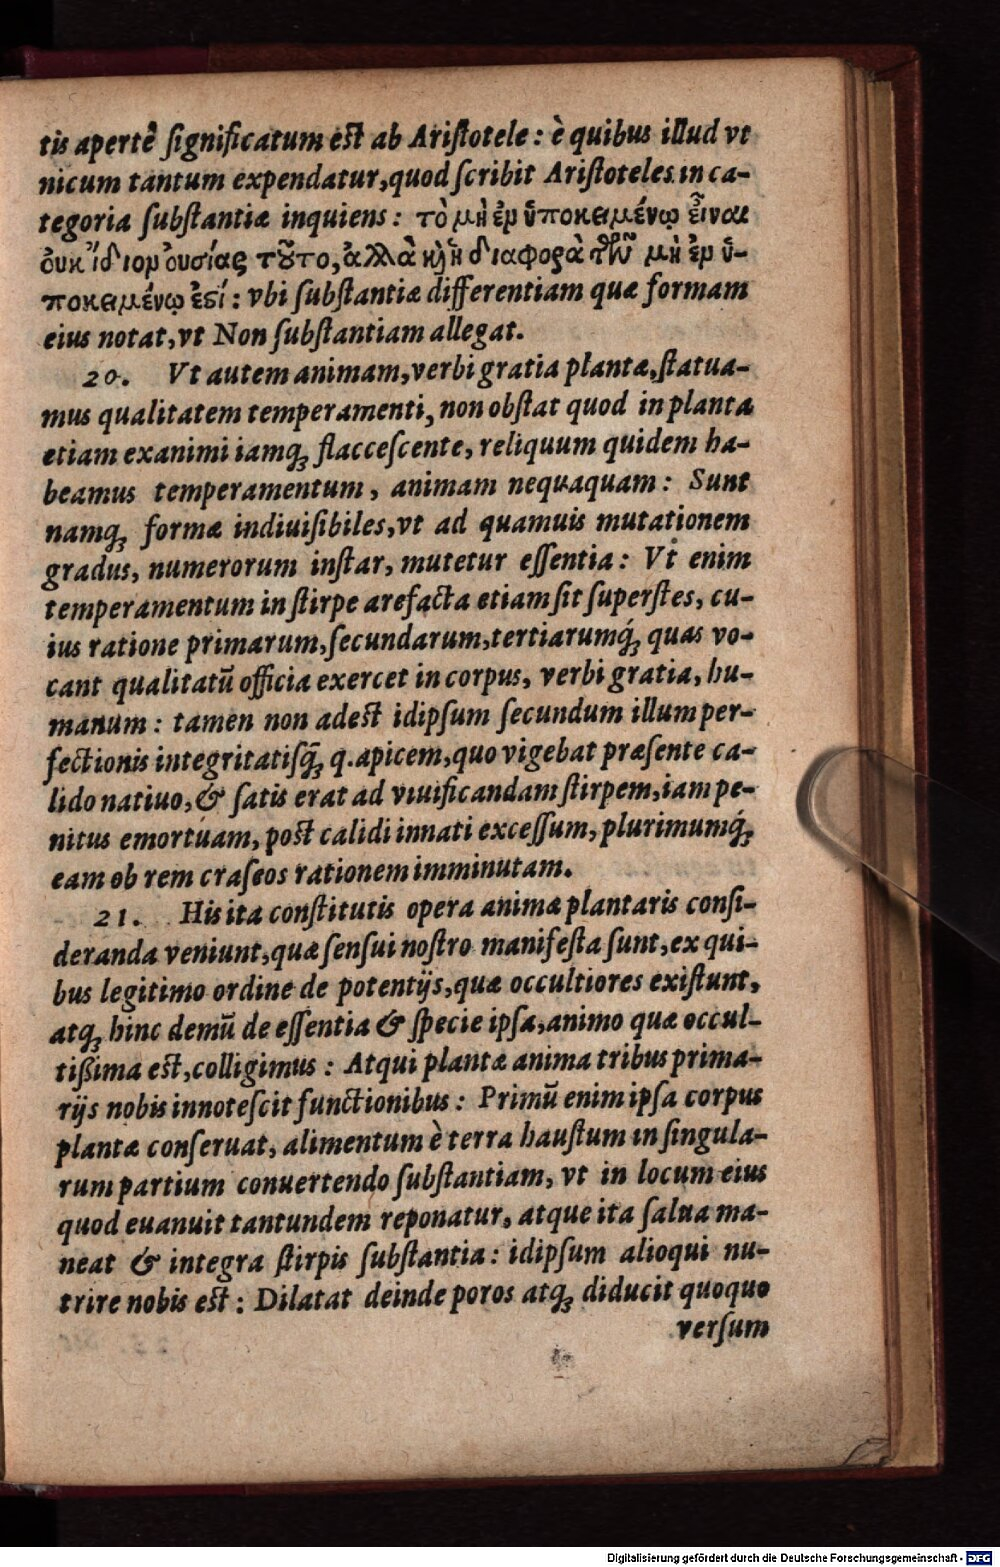 tis apertè significatum est ab Aristotele: è quibus illud vt
nicum tantum expendatur, quod scribit Aristoteles in ca-
tegoria substantiæ inquiens: τὸ μὴ ἐν ὑποκειμένῳ εἶναι
ὀυκ ἴδιον ὀυσίας τοῦτο, ἀλλὰ κὴ ἡ διαφορὰ τῶν μὴ ἐν ὑ-
ποκειμένῳ ἐστί: vbi substantiæ differentiam quæ formam
eius notat, vt Non substantiam allegat.
20. Vt autem animam, verbi gratia plantæ, statua-
mus qualitatem temperamenti, non obstat quod in planta
etiam exanimi iamq́; flaccescente, reliquum quidem ha-
beamus temperamentum, animam nequaquam: Sunt
namq́; formæ indiuisibiles, vt ad quamuis mutationem
gradus, numerorum instar, mutetur essentia: Vt enim
temperamentum in stirpe arefacta etiam sit superstes, cu-
ius ratione primarum, secundarum, tertiarumq́; quas vo-
cant qualitatũ officia exercet in corpus, verbi gratia, hu-
manum: tamen non adest idipsum secundum illum per-
fectionis integritatisq̃; q. apicem, quo vigebat præsente ca-
lido natiuo, & satis erat ad viuificandam stirpem, iam pe-
nitus emortuam, post calidi innati excessum, plurimumq́;
eam ob rem craseos rationem imminutam.
21. His ita constitutis opera animæ plantaris consi-
deranda veniunt, quæ sensui nostro manifesta sunt, ex qui-
bus legitimo ordine de potentijs, quæ occultiores existunt,
atq; hinc demũ de essentia & specie ipsa, animo quæ occul-
tißima est, colligimus: Atqui plantæ anima tribus prima-
rijs nobis innotescit functionibus: Primũ enim ipsa corpus
plantæ conseruat, alimentum è terra haustum in singula-
rum partium conuertendo substantiam, vt in locum eius
quod euanuit tantundem reponatur, atque ita salua ma-
neat & integra stirpis substantia: idipsum alioqui nu-
trire nobis est: Dilatat deinde poros atq; diducit quoquo
versum
Digitalisierung gefördert durch die Deutsche Forschungsgemeinschaft - DFG